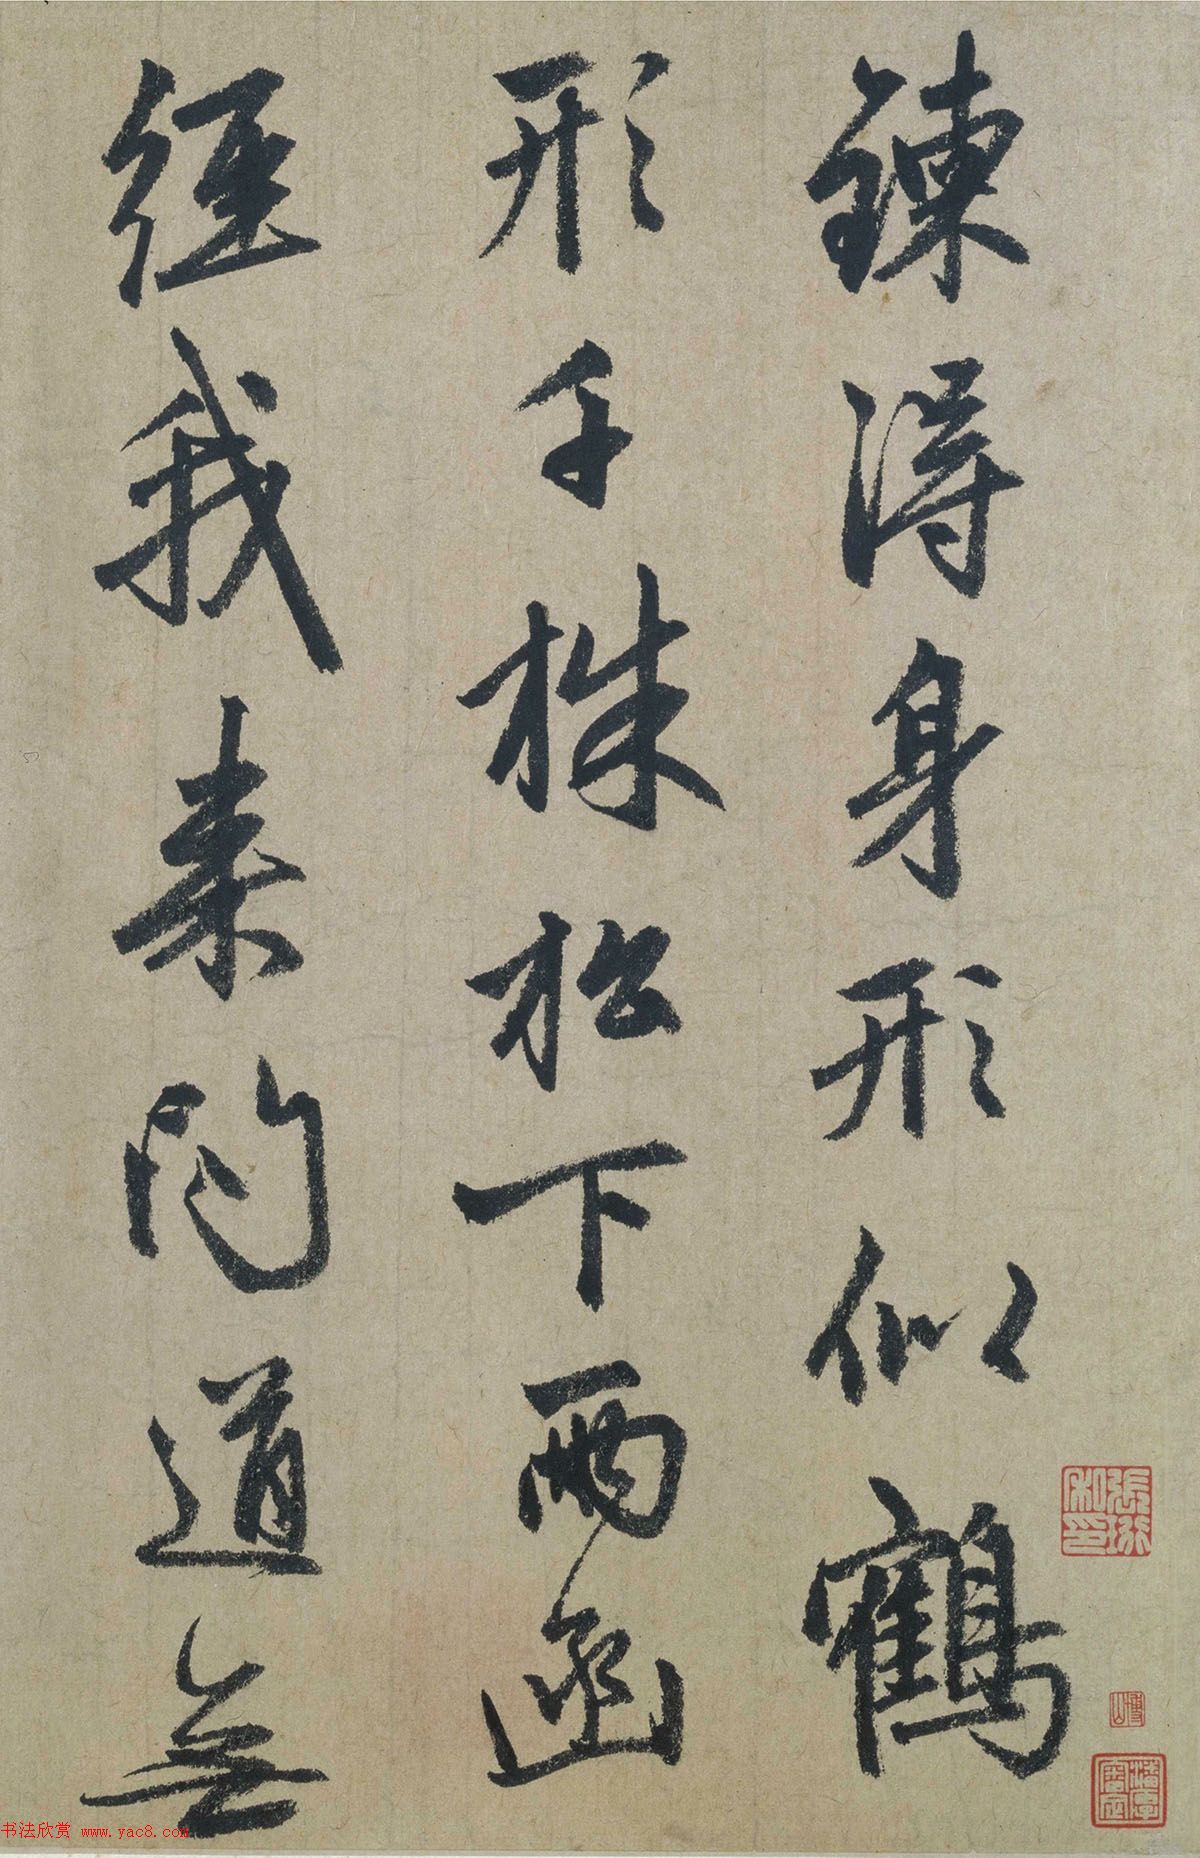 鍊得身形似鶴
形千株松下兩函
經我來問道無
張珩私印
書法欣賞 www.yac8.com